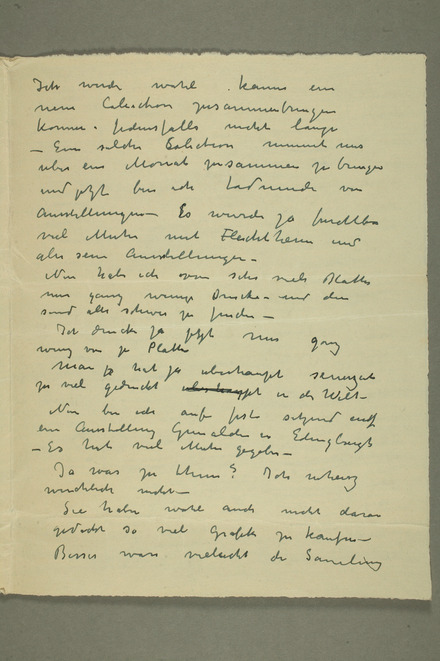 Ich werde wohl kaum ein
neue Collection zusammenbringen
können. Jedenfalls nicht lange
– Ein solche Collection nimmt uns
über ein Monat zusammen zu bringen
und jetzt bin ich todmüde von
Ausstellungen – Es wurde ja
viel Mühe mit Flechtheim und
alle sein Ausstellungen –
Nun hab ich schon sehr viele Platten
nur ganz wenige Drucke – und die
sind alle schwer zu finden –
Ich drucke ja jetzt nur ganz
wenig von je Platte
Man hat ja überhaupt seinerzeit
zu viel gedruckt in der Welt –
Nun bin ich auf
ein Ausstellung Gemälden in
– Es hat viel Mühe gegeben –
Ja was zu thun? Ich
wirklich nicht –
Sie haben wohl auch nicht daran
gedacht so viel Grafik zu kaufen –
Besser wäre vielleicht die Samling